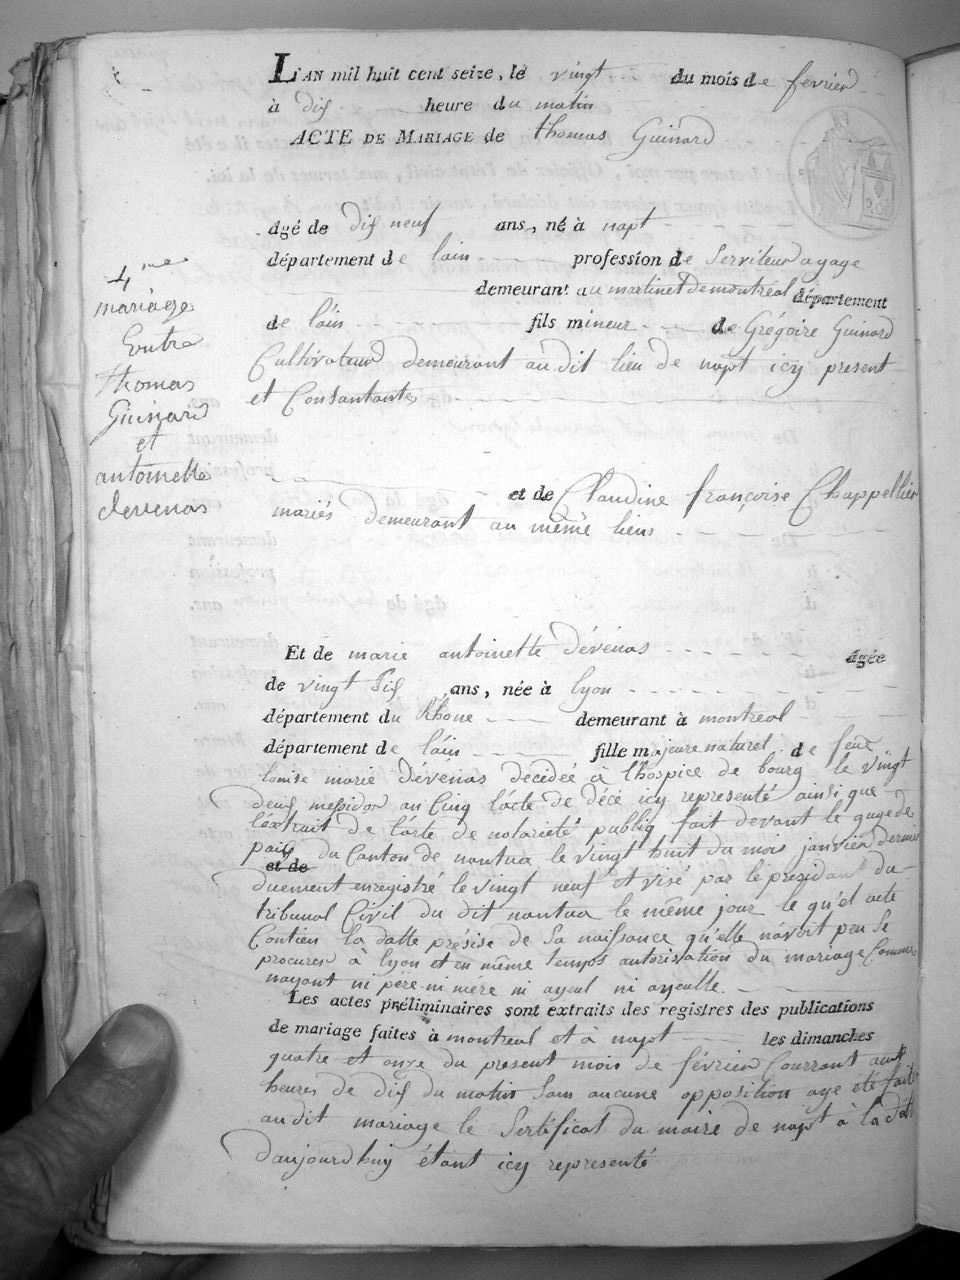 L'AN mil huit cent seize, le vingt du mois de fevrier
à dix heure du matin
ACTE DE MARIAGE de thomas Guinard
âgé de dix neuf ans, né à napt
département de lain profession de Serviteur agage
demeurant au martinet demontréal département
de lain fils mineur de Grégoire Guinard
Cultivateur demeurant audit lieu de napt icy present
et Consantante
4me
mariage
Entre
thomas
Guinard
et
antoinette
devenas
et de Claudine françoise Chappellier
mariés demeurant au même lieus
Et de marie antoinette Dévenas âgée
de vingt Six ans, née à lyon
département du Rhone demeurant à montréal
département de lain fille majeure naturel de feue
louise marie dévenas décidée à l'hospice de bourg le vingt
deux messidor an Cinq l'acte de décé icy representé ainsi que
l'extrait de l'acte de notarieté publiq fait devant le gugede
paix du Canton de nantua le vingt huit du mois janvier dernier
et de
duement enregistré le vingt neuf et visé par le président du
tribunal Civil du dit nantua le même jour le qu'el acte
Contien la datte présise de Sa naissance qu'elle navoit peu Se
procurer à lyon et en même temps autorisation du mariage Comme
nayant ni père ni mére ni ayeul ni ayeulle
Les actes préliminaires sont extraits des registres des publications
de mariage faites à montreal et à napt les dimanches
quatre et onze du present mois de février Courrant aux
heures de dix du matin Sans aucune opposition aye été faite
audit mariage le Sertificat du maire de napt à la date
daujourdhuy étant icy representé